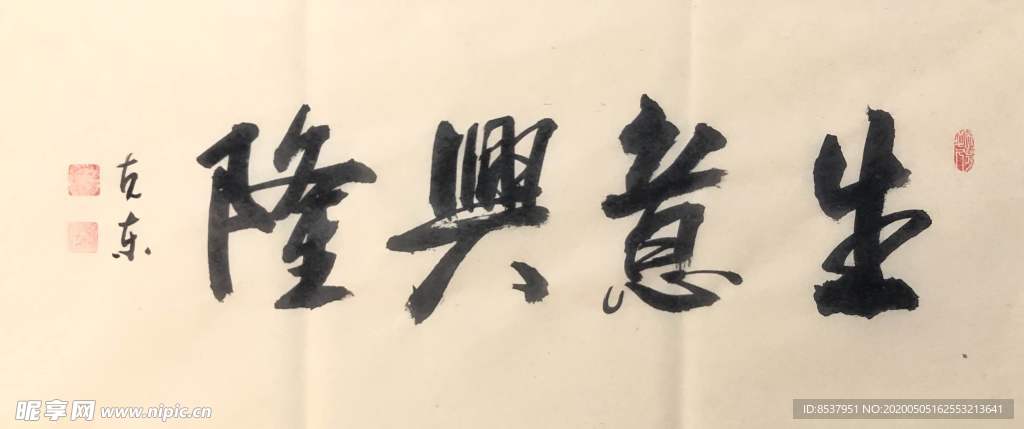 生意興隆
克东
昵享网 www.nipic.cn
ID:8537951 NO:20200505162553213641